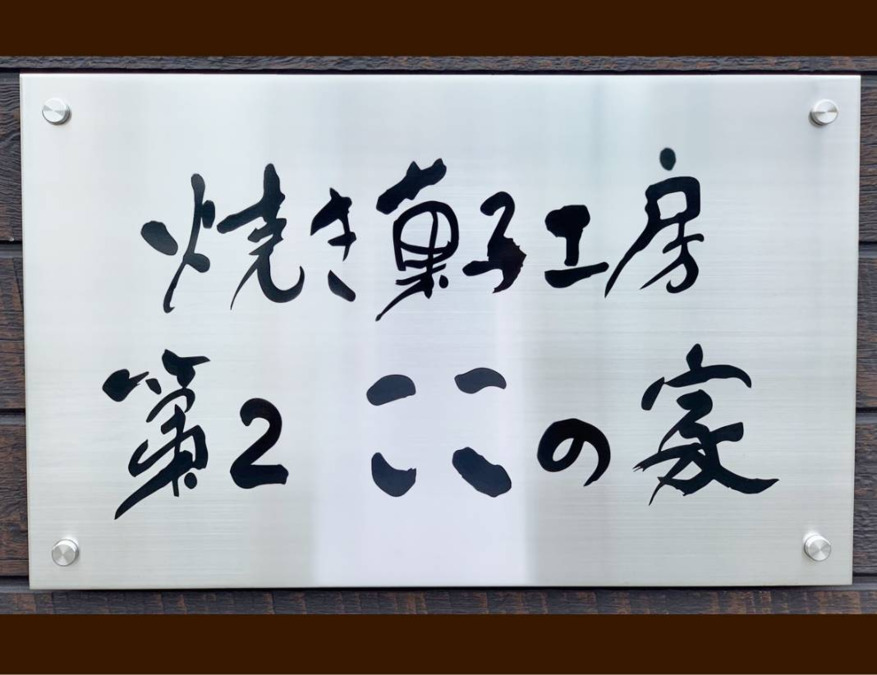 焼き菓子工房
第2 ここの家